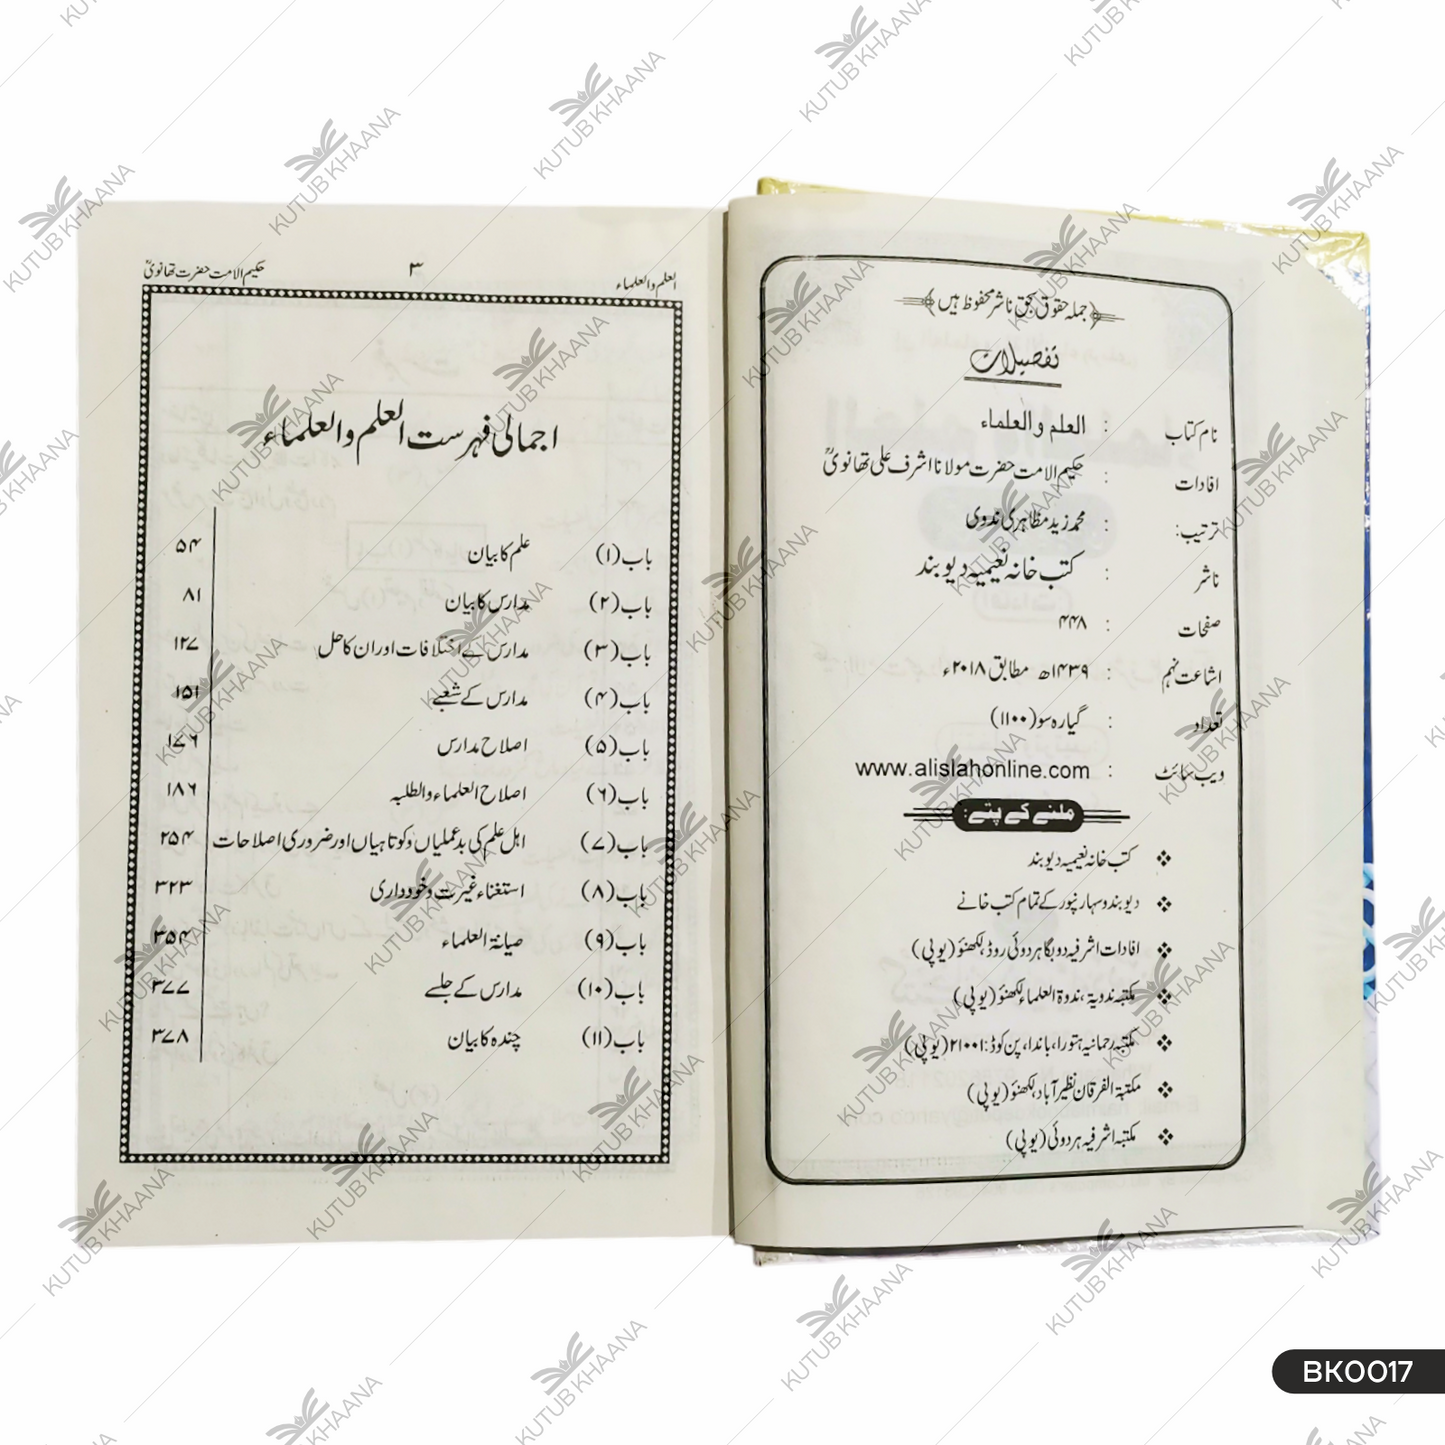 ﴿جملہ حقوق بحق ناشر محفوظ ہیں﴾
تفصیلات
نام کتاب : العلم والعلماء
افادات : حکیم الامت حضرت مولانا اشرف علی تھانویؒ
ترتیب: : محمد زید مظاہری ندوی
ناشر : کتب خانہ نعیمیہ دیوبند
صفحات : ۴۴۸
اشاعت نہم : ۱۴۳۹ھ مطابق ۲۰۱۸ء
تعداد : گیارہ سو (۱۱۰۰)
ویب سائٹ : www.alislahonline.com
ملنے کے پتے:
❖ کتب خانہ نعیمیہ دیوبند
❖ دیوبند و سہارنپور کے تمام کتب خانے
❖ افادات اشرفیہ دوبگا ہردوئی روڈ لکھنؤ (یوپی)
❖ مکتبہ ندویۃ، ندوۃ العلماء لکھنؤ (یوپی)
❖ مکتبہ رحمانیہ ہتورا، باندا، پن کوڈ: ۲۱۰۰۱ (یوپی)
❖ مکتبۃ الفرقان نظیر آباد، لکھنؤ (یوپی)
❖ مکتبہ اشرفیہ ہردوئی (یوپی)
العلم والعلماء ۳ حکیم الامت حضرت تھانویؒ
اجمالی فہرست العلم والعلماء
باب (۱) علم کا بیان ۵۴
باب (۲) مدارس کا بیان ۸۱
باب (۳) مدارس کے اختلافات اور ان کا حل ۱۲۷
باب (۴) مدارس کے شعبے ۱۵۱
باب (۵) اصلاح مدارس ۱۷۶
باب (۶) اصلاح العلماء والطلبہ ۱۸۶
باب (۷) اہل علم کی بدعملیاں وکوتاہیاں اور ضروری اصلاحات ۲۵۴
باب (۸) استغناء غیرت وخودداری ۳۲۳
باب (۹) صیانۃ العلماء ۳۵۴
باب (۱۰) مدارس کے جلسے ۳۷۷
باب (۱۱) چندہ کا بیان ۳۷۸
KUTUB KHAANA
BK0017